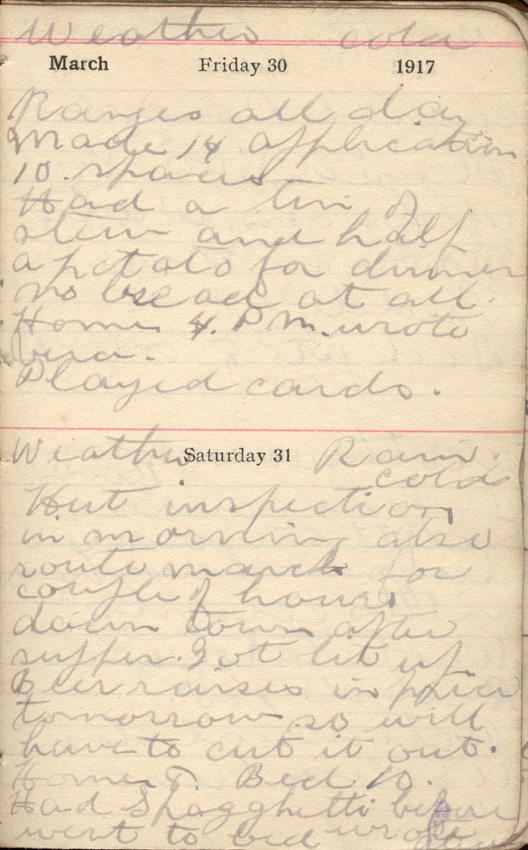 Weather cold
March Friday 30 1917
Ranges all day
Made 14 application
10. snaps
Had a tin of
stew and half
a potato for dinner
no bread at all.
Home 4. P.M. wrote
Played cards.
Weather Saturday 31 Rain.
cold
Hut inspection
in morning also
route march for
couple of hours
down town after
supper. Got lit up
Beer raises in price
tomorrow so will
have to cut it out.
Home 8. Bed 10.
Had Spagghetti before
went to bed wrote